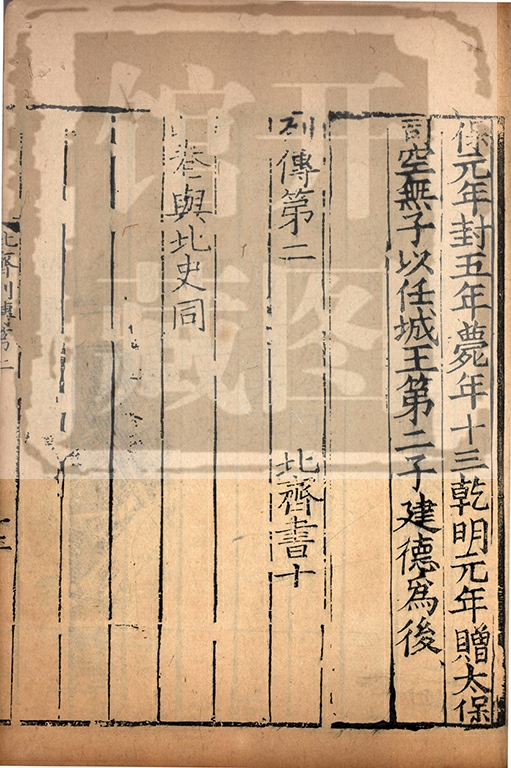 保元年封五年薨年十三乾明元年贈太保
司空無子以任城王第二子建德為後
列傳第二 北齊書十
卷與北史同
北齊列傳第二
开图馆藏